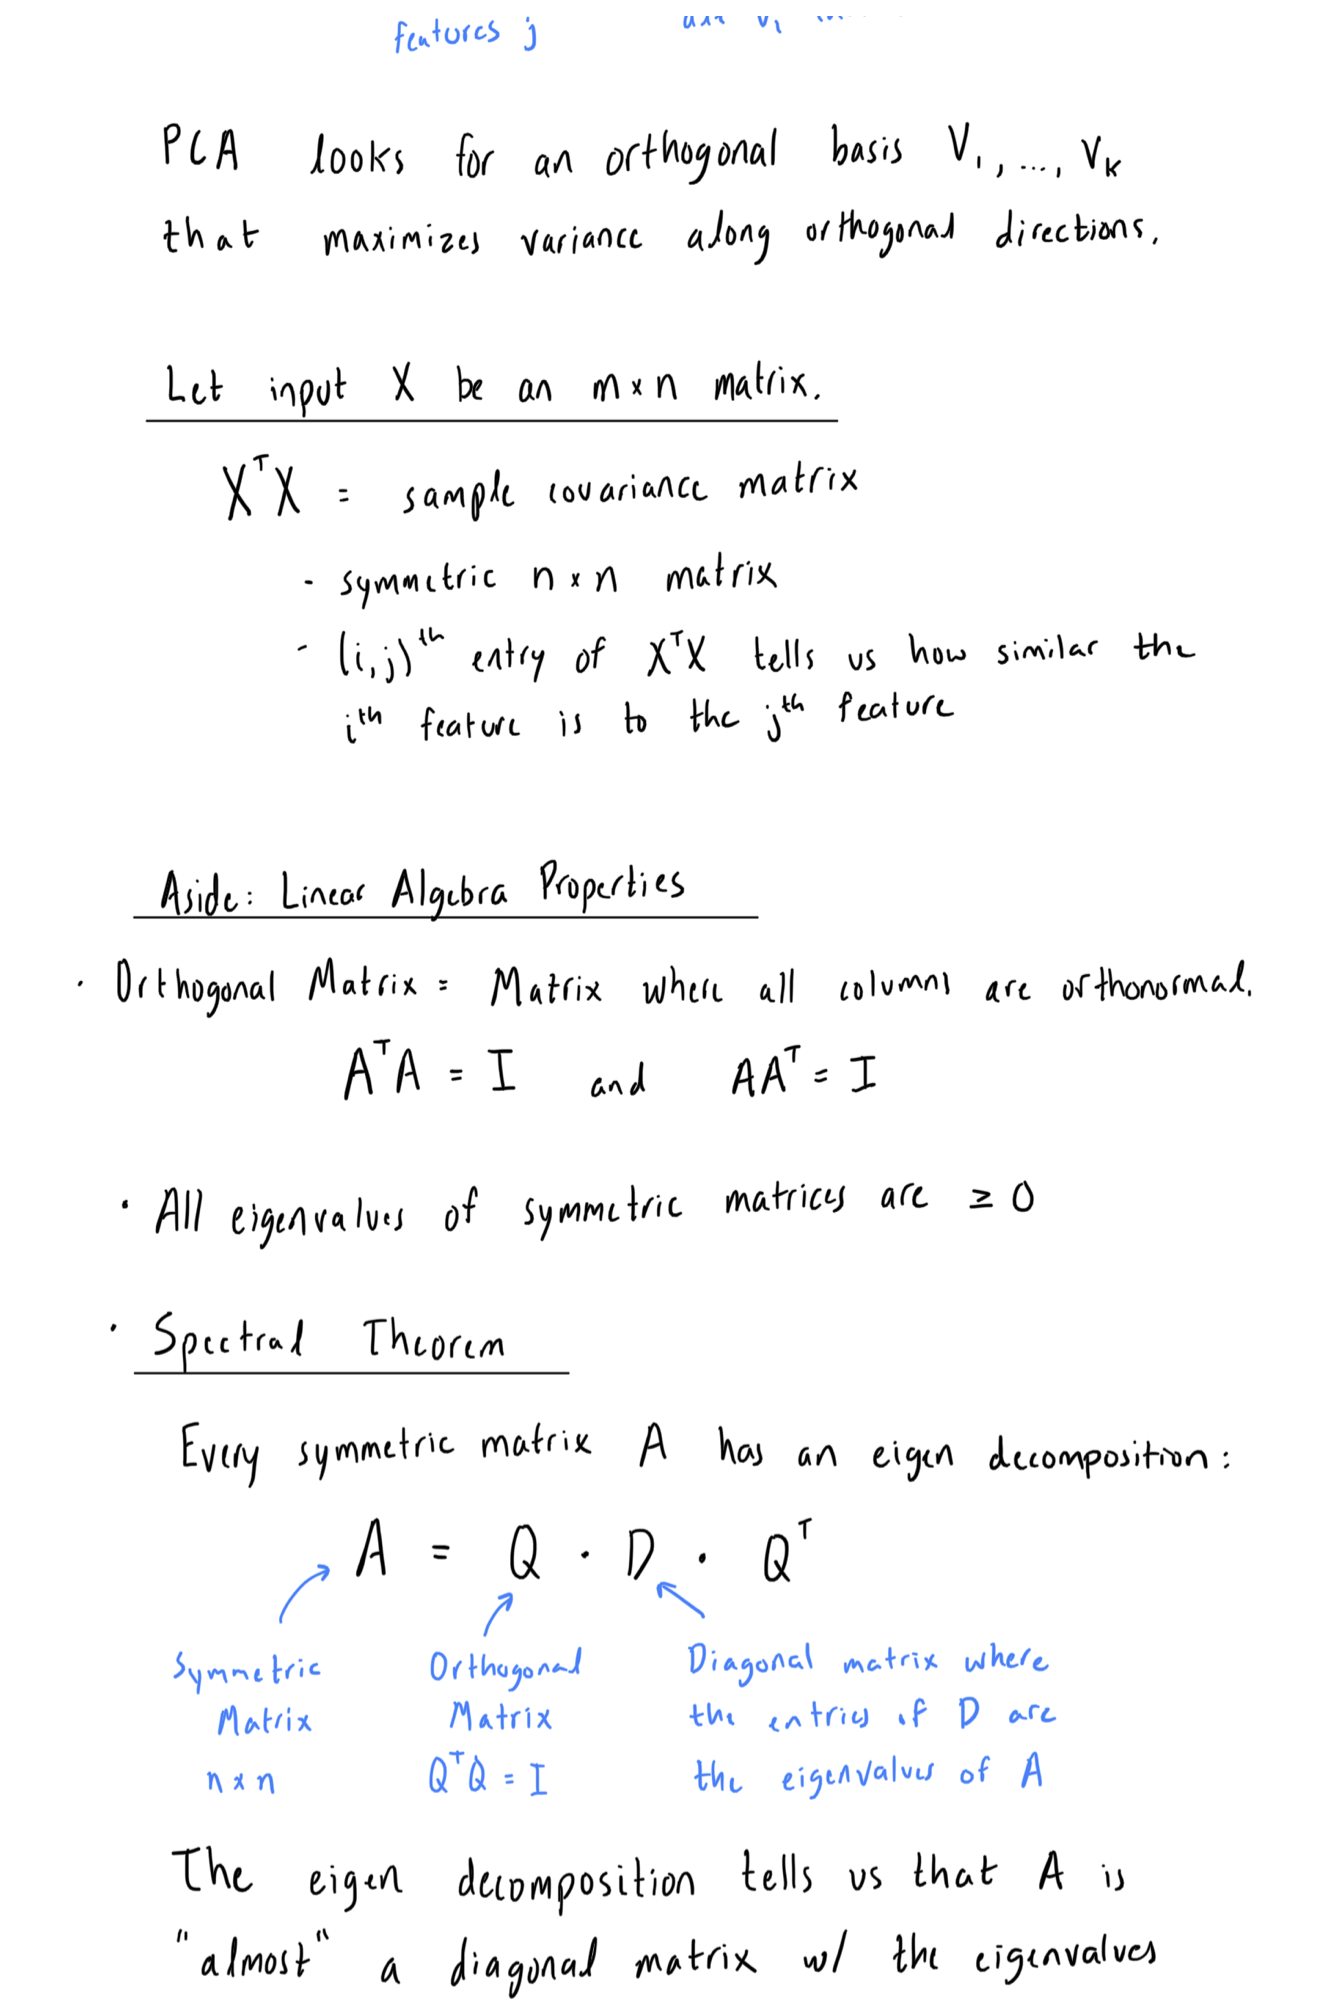 features j
PCA looks for an orthogonal basis V₁, ..., Vₖ
that maximizes variance along orthogonal directions.
Let input X be an m × n matrix.
XᵀX = sample covariance matrix
- symmetric n × n matrix
- (i,j)ᵗʰ entry of XᵀX tells us how similar the
iᵗʰ feature is to the jᵗʰ feature
Aside: Linear Algebra Properties
· Orthogonal Matrix = Matrix where all columns are orthonormal.
AᵀA = I and AAᵀ = I
· All eigenvalues of symmetric matrices are ≥ 0
· Spectral Theorem
Every symmetric matrix A has an eigen decomposition:
A = Q · D · Qᵀ
Symmetric Orthogonal Diagonal matrix where
Matrix Matrix the entries of D are
n × n QᵀQ = I the eigenvalues of A
The eigen decomposition tells us that A is
"almost" a diagonal matrix w/ the eigenvalues